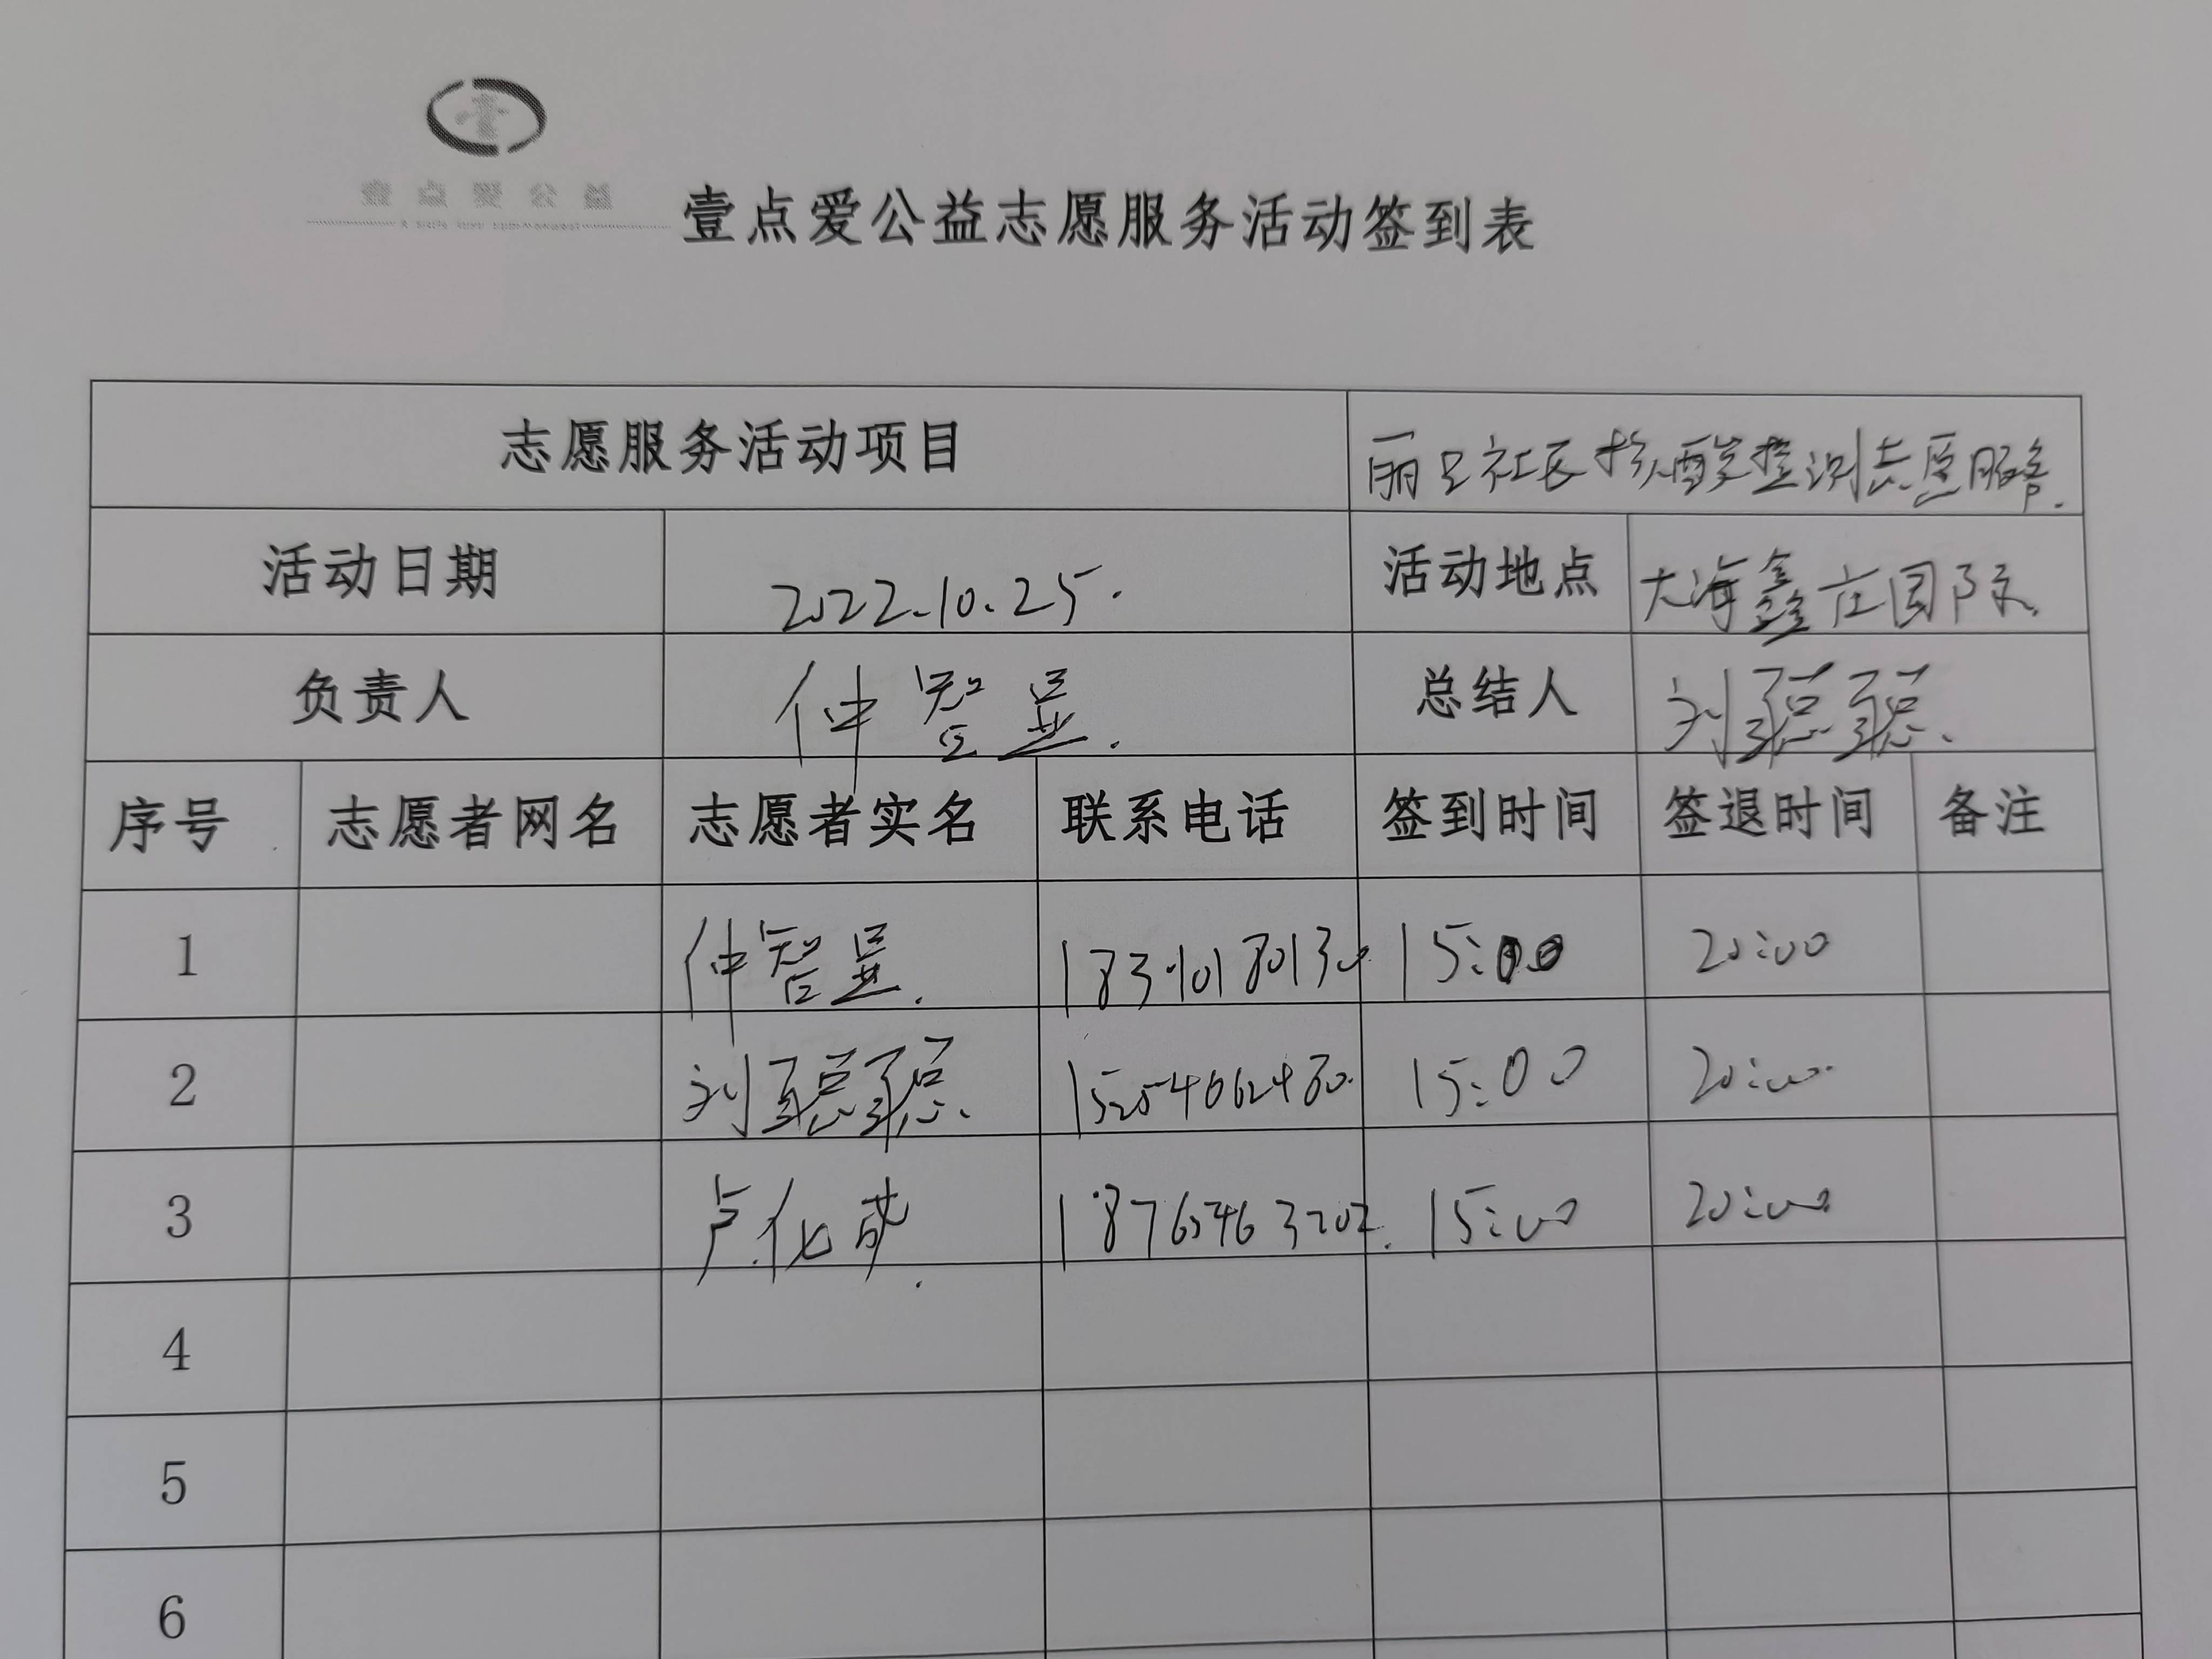 壹点爱公益
壹点爱公益志愿服务活动签到表
志愿服务活动项目 丽日社区核酸检测志愿服务.
活动日期 2022.10.25. 活动地点 大海鑫庄园
负责人 仲智显. 总结人 刘聪聪.
序号 志愿者网名 志愿者实名 联系电话 签到时间 签退时间 备注
1 仲智显. 15:00 20:00
2 刘聪聪. 15254662480. 15:00 20:00.
3 卢化 15:00 20:00.
4
5
6